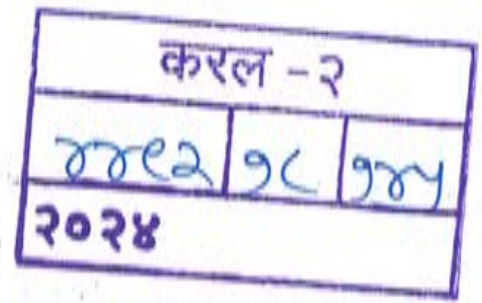 करल - २
४४९२ १८ १४५
२०२४